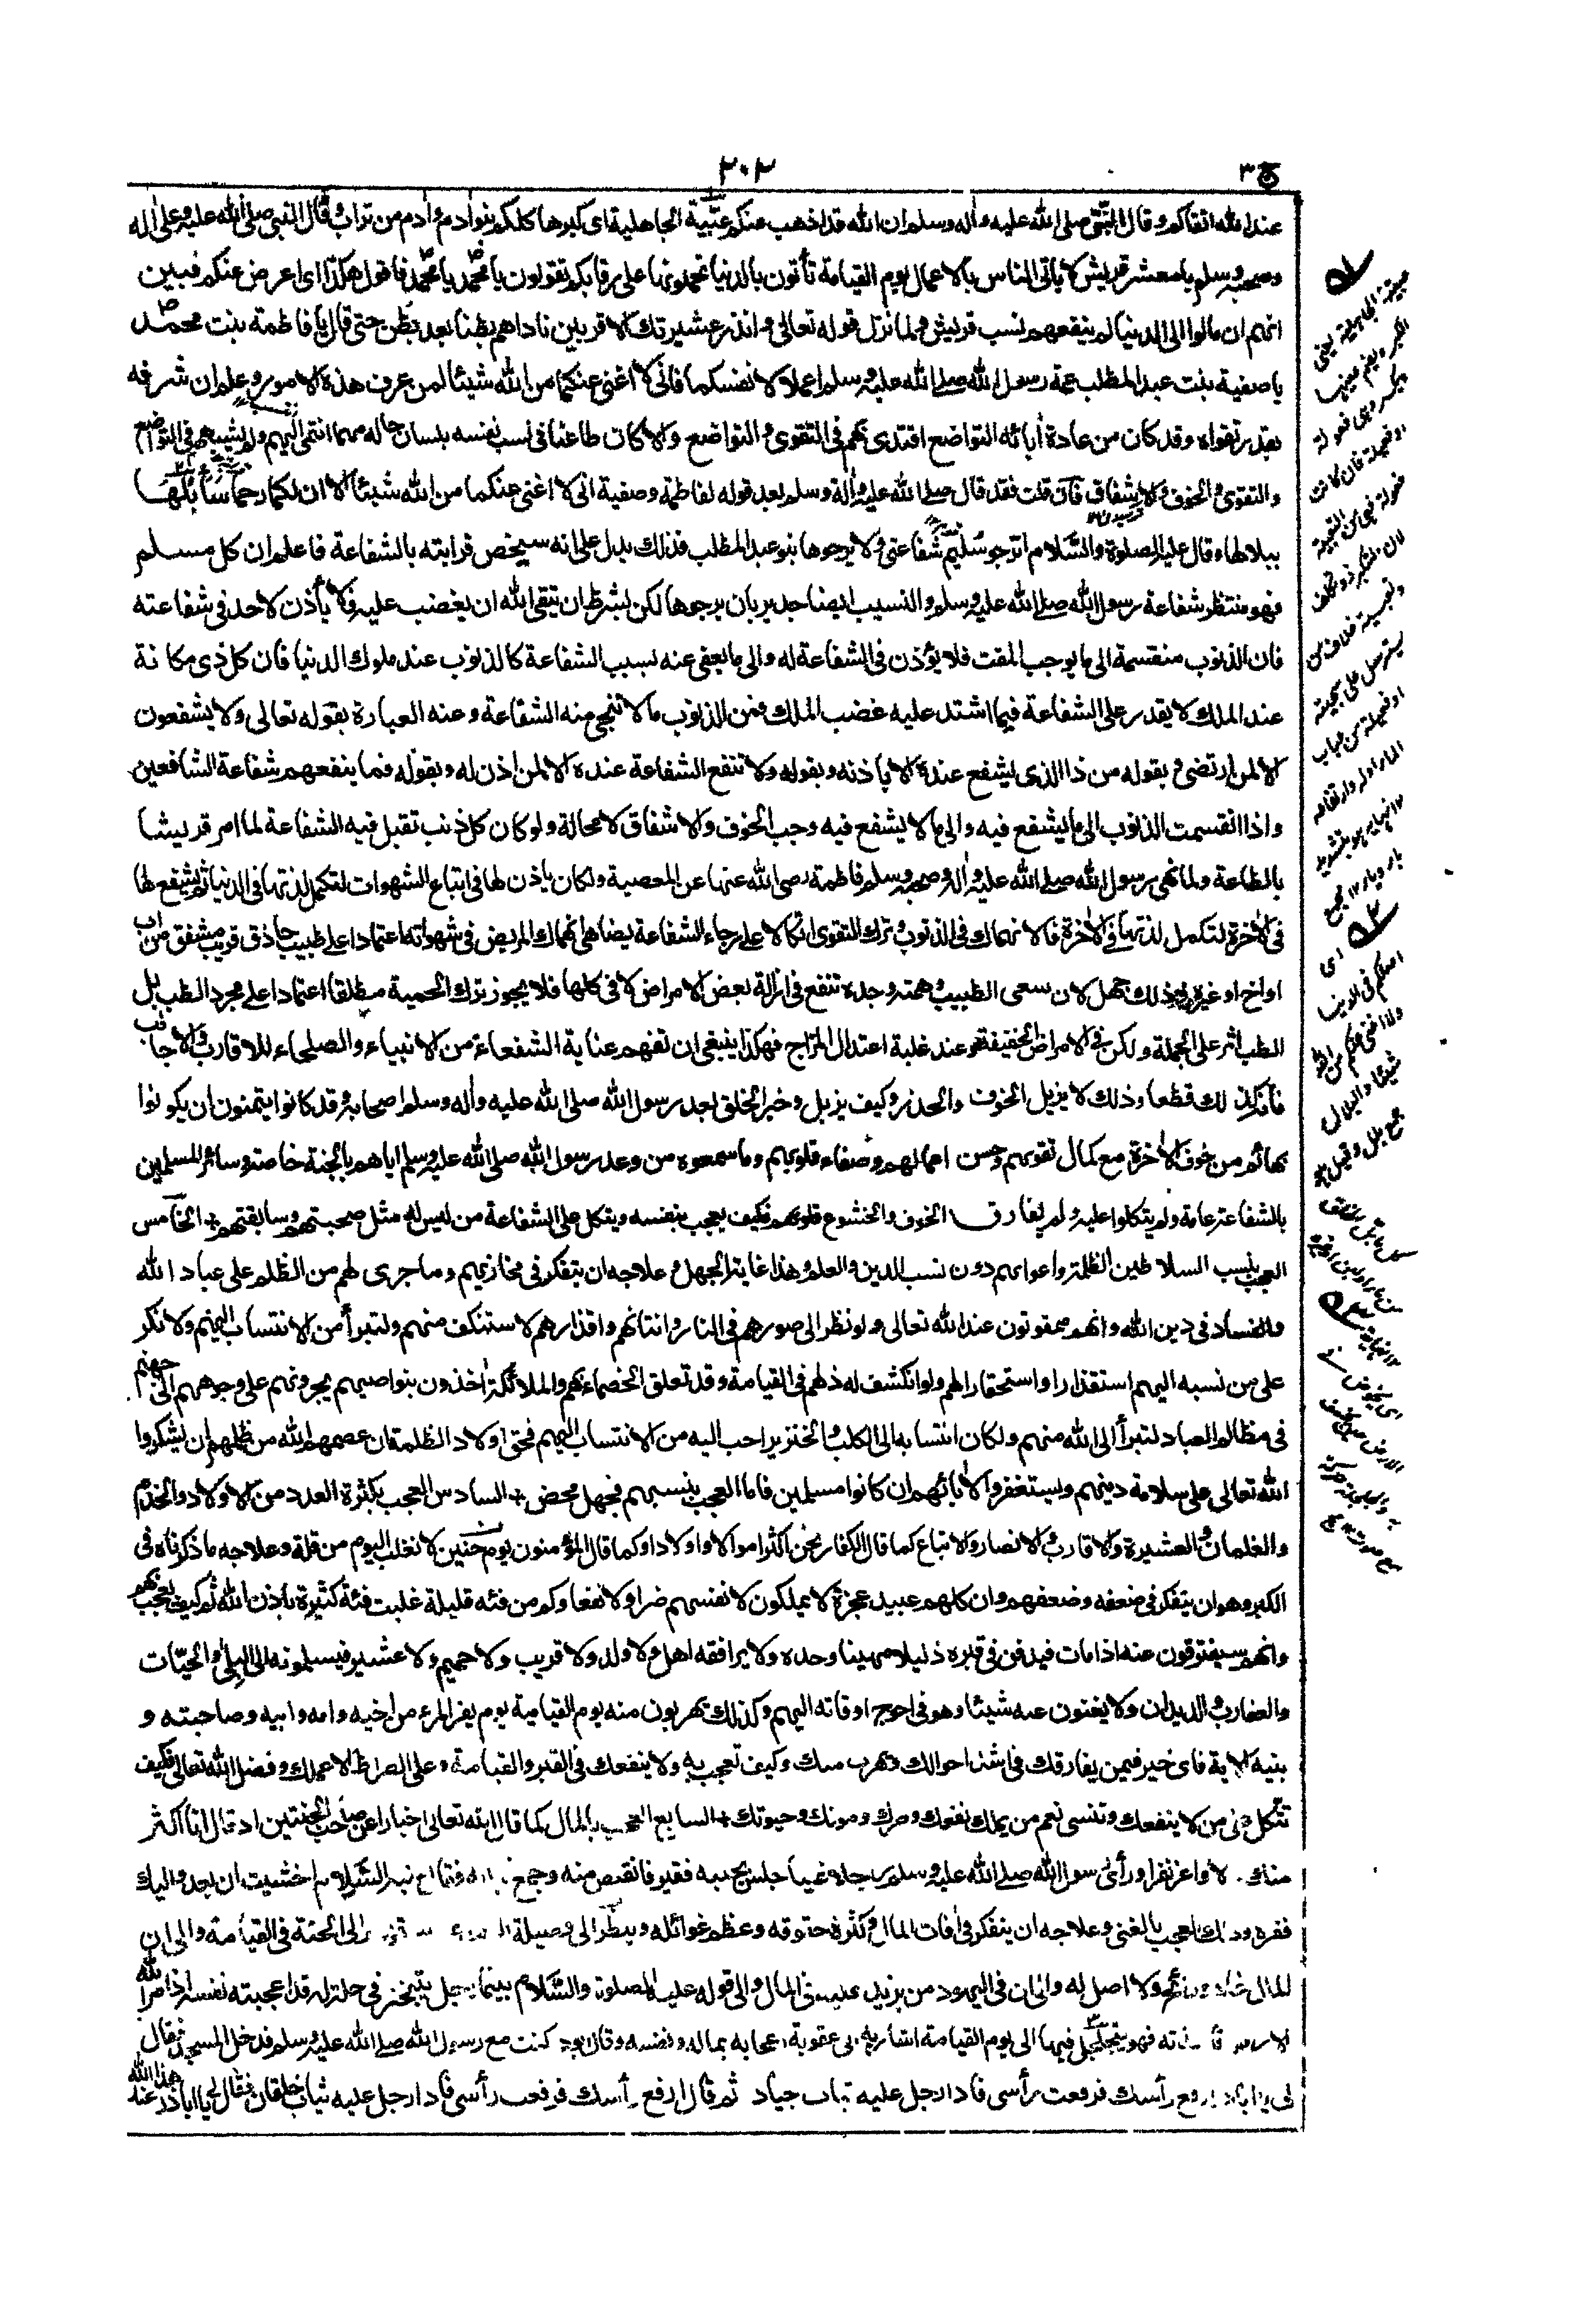 ج ٣
٣٠٢
عند الله اتقاكم وقال النبي صلى الله عليه وأله وسلم ان الله قد اذهب عنكم عبّية الجاهلية اى كبرها كلكم بنوا دم وأدم من تراب وقال النبى صلى الله عليه وعلى اله
وصحبه وسلم يا معشر قريش لا يأتى الناس بالاعمال يوم القيامة تأتون بالدنيا تحملونها على رقابكم تقولون يا محمّد يا محمّد فاقول هكذا اى اعرض عنكم فبين
انهم ان مالوا الى الدنيا لم ينفعهم نسب قريش ولما نزل قوله تعالى وانذر عشيرتك الاقربين ناداهم بطنا بعد بطن حتى قال يا فاطمة بنت محمد
يا صفية بنت عبد المطلب عمة رسول الله صلى الله عليه وسلم اعملا لانفسكما فانى لا اغنى عنكما من الله شيئا فمن عرف هذه الامور وعلم ان شرفه
بقدر تقواه وقد كان من عادة أبائه التواضع اقتدى بهم فى التقوى و التواضع والا كان طاعنا فى نسب نفسه بلسان حاله مهما انتمى اليهم ولم يشبههم فى التواضع
والتقوى و الخوف والاشفاق فان قلت فقد قال صلى الله عليه وأله وسلم بعد قوله لفاطمة وصفية انى لا اغنى عنكما من الله شيئا الا ان لكما رحما سأبلها
ببلالها وقال عليه الصلوة والسّلام اترجو سُليم شفاعتى ولا يرجوها بنو عبد المطلب فذلك يدل على انه سيخص قرابته بالشفاعة فاعلم ان كل مسلم
فهو منتظر شفاعة رسول الله صلى الله عليه وسلم والنسيب ايضا جدير بان يرجوها لكن بشرط ان يتقى الله ان يغضب عليه فلا يأذن لاحد فى شفاعته
فان الذنوب منقسمة الى ما يوجب المقت فلا يؤذن فى الشفاعة له والى ما يعفى عنه بسبب الشفاعة كالذنوب عند ملوك الدنيا فان كل ذى مكانة
عند الملك لا يقدر على الشفاعة فيما اشتد عليه غضب الملك فمن الذنوب ما لا تنجى منه الشفاعة وعنه العبارة بقوله تعالى ولا يشفعون
الا لمن ارتضى و بقوله من ذا الذى يشفع عنده الا باذنه و بقوله ولا تنفع الشفاعة عنده الا لمن اذن له وبقوله فما ينفعهم شفاعة الشافعين
واذا انقسمت الذنوب الى ما يشفع فيه والى ما لا يشفع فيه وجب الخوف والاشفاق لا محالة ولو كان كل ذنب تقبل فيه الشفاعة لما امر قريشا
بالطاعة ولما نهى رسول الله صلى الله عليه وأله وصحبه وسلم فاطمة رضى الله عنها عن المعصية ولكان يأذن لها فى اتباع الشهوات لتكمل لذتها فى الدنيا ثم يشفع لها
فى الأخرة لتكمل لذتها فى الأخرة فالانهماك فى الذنوب وترك التقوى اتكالا على رجاء الشفاعة يضاهى انهماك المريض فى شهواته اعتمادا على طبيب حاذق قريب مشفق من اب
او اخ او غيره وذلك جهل لان سعى الطبيب وهمته وحذقه تنفع فى ازالة بعض الامراض لا فى كلها فلا يجوز ترك الحمية مطلقا اعتمادا على مجرد الطب بل
للطب اثر على الجملة ولكن فى الامراض الخفيفة و عند غلبة اعتدال المزاج فهكذا ينبغى ان تفهم عناية الشفعاء من الانبياء والصلحاء للاقارب والاجانب
فانه كذلك قطعا وذلك لا يزيل الخوف والحذر وكيف يزيل وخير الخلق بعد رسول الله صلى الله عليه وأله وسلم اصحابه وقد كانوا يتمنون ان يكونوا
بهائم من خوف الأخرة مع كمال تقوىهم وحسن اعمالهم وصفاء قلوبهم وما سمعوه من وعد رسول الله صلى الله عليه وسلم اياهم بالجنة خاصة وسائر المسلمين
بالشفاعة عامة ولم يتكلوا عليه ولم يفارق الخوف والخشوع قلوبهم فكيف يعجب بنفسه ويتكل على الشفاعة من ليس له مثل صحبتهم وسابقتهم الخامس
العجب بنسب السلاطين الظلمة واعوانهم دون نسب الدين والعلم وهذا غاية الجهل و علاجه ان يتفكر فى مخازيهم وما جرى لهم من الظلم على عباد الله
والفساد فى دين الله وانهم ممقوتون عند الله تعالى و لو نظر الى صورهم فى النار وانتانهم واقذارهم لاستنكف منهم ولتبرأ من الانتساب اليهم ولانكر
على من نسبه اليهم استقذارا واستحقارا لهم ولو انكشف له ذلهم فى القيامة وقد تعلق الخصماء بهم والملائكة أخذون بنواصيهم يجرونهم على وجوههم الى جهنم
فى مظالم العباد لتبرأ الى الله منهم ولكان انتسابه الى الكلب والخنزير احب اليه من الانتساب اليهم فحق اولاد الظلمة ان عصمهم الله من ظلمهم ان يشكروا
الله تعالى على سلامة دينهم ويستغفروا لأبائهم ان كانوا مسلمين فاما العجب بنسبهم فجهل محض السادس العجب بكثرة العدد من الاولاد والخدم
والغلمان و العشيرة والاقارب والانصار والاتباع كما قال الكفار نحن اكثر اموالا واولادا وكما قال المؤمنون يوم حنين لا نغلب اليوم من قلة وعلاجه ما ذكرناه فى
الكبر وهو ان يتفكر فى ضعفه وضعفهم وان كلهم عبيد عجزة لا يملكون لانفسهم ضرا ولا نفعا وكم من فئه قليلة غلبت فئة كثيرة باذن الله ثم كيف يعجب بهم
وانهم سيفترقون عنه اذا مات فيدفن فى قبره ذليلا مهينا وحده ولا يرافقه اهل ولا ولد ولا قريب ولا حميم ولا عشير فيسلمونه الى البلى والحيّات
والعقارب والديدان ولا يغنون عنه شيئا وهو فى احوج اوقاته اليهم وكذلك يهربون منه يوم القيامة يوم يفر المرء من اخيه وامه وابيه وصاحبته و
بنيه الاية فاى خير فيمن يفارقك فى اشد احوالك ويهرب منك وكيف تعجب به ولا ينفعك فى القبر والقيامة وعلى الصراط الا عملك وفضل الله تعالى فكيف
تتكل على من لا ينفعك وتنسى نعم من يملك نفعك وضرك وموتك وحيوتك السابع العجب بالمال كما قال الله تعالى اخبارا عن صاحب الجنتين اذ قال انا اكثر
منك مالا واعز نفرا ورأى رسول الله صلى الله عليه وسلم رجلا غنيا جلس بجنبه فقير فانقبض منه وجمع ثيابه فقال عليه السّلام اخشيت ان يعدو اليك
فقره وذلك للعجب بالغنى وعلاجه ان يتفكر فى أفات المال و كثرة حقوقه وعظم غوائله وينظر الى فضيلة الى الجنة فى القيامة والى ان
المال غاد ورائح ولا اصل له والى ان فى اليهود من يزيد عليه فى المال والى قوله عليه الصلوة والسّلام بينما رجل يتبختر فى حلة له قد اعجبته نفسه اذ امر الله
الارض فأخذته فهو يتجلجل فيها الى يوم القيامة اشار به الى عقوبة اعجابه بماله ونفسه وقال ابوذر كنت مع رسول الله صلى الله عليه وسلم فدخل المسجد فقال
لى يا اباذر ارفع رأسك فرفعت رأسى فاذا رجل عليه ثياب جياد ثم قال ارفع رأسك فرفعت رأسى فاذا رجل عليه ثياب خلقان فقال لى يا اباذر هذا عند الله